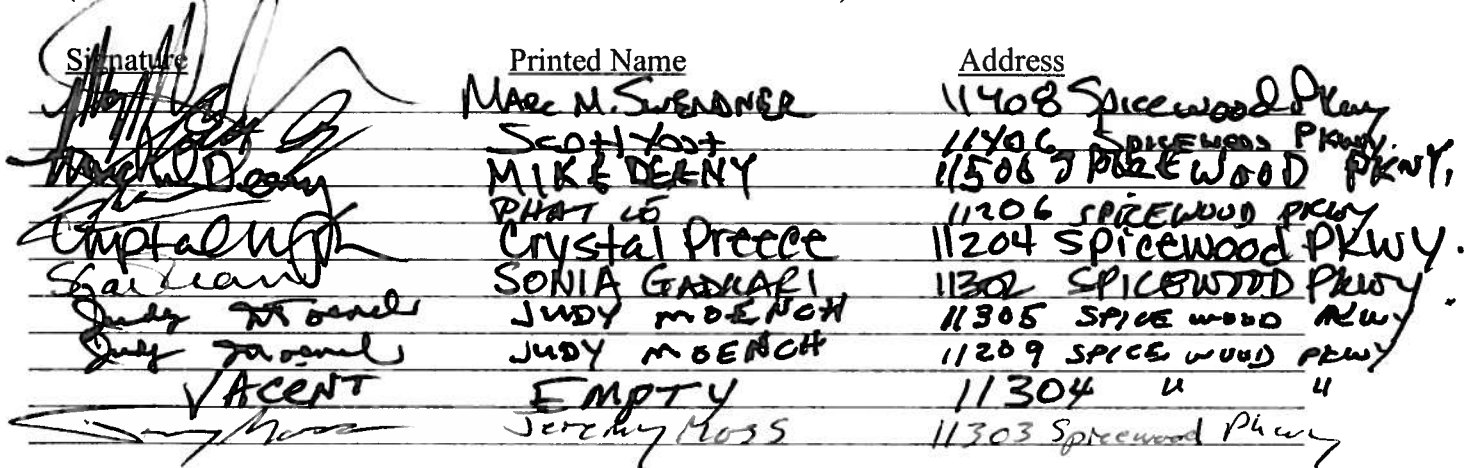 Signature Printed Name Address
Marc M. Swendner 11408 Spicewood Pkwy
Scott Yost 11406 Spicewood Pkwy.
MIKE DEENY 11506 SPICEWOOD PKWY.
PHAT LE 11206 SPICEWOOD PKWY
Crystal Preece 11204 Spicewood PKWY.
SONIA GADKARI 11302 SPICEWOOD PKWY.
Judy Moench JUDY MOENCH 11305 SPICE WOOD PKWY
Judy Moench JUDY MOENCH 11209 SPICE WOOD PKWY
VACENT EMPTY 11304 " "
Jeremy Moss 11303 Spicewood Pkwy